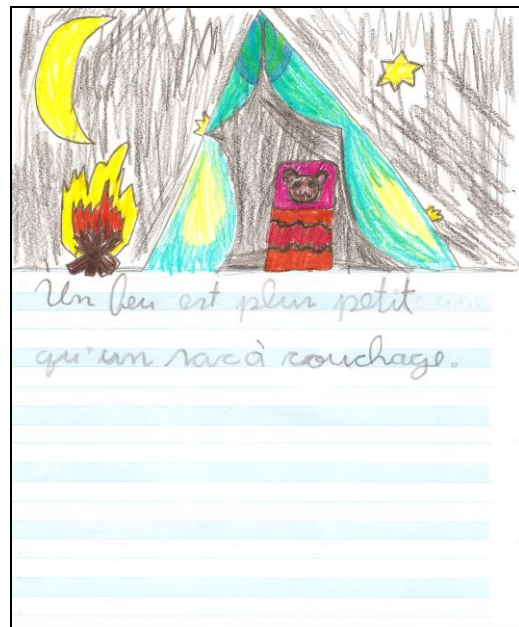 Un feu est plus petit
qu'un sac à couchage.